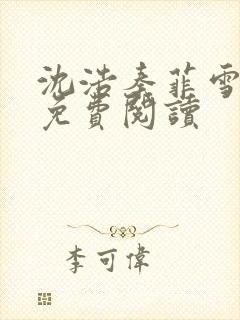 沈浩秦菲雪
免費閱讀
李可偉